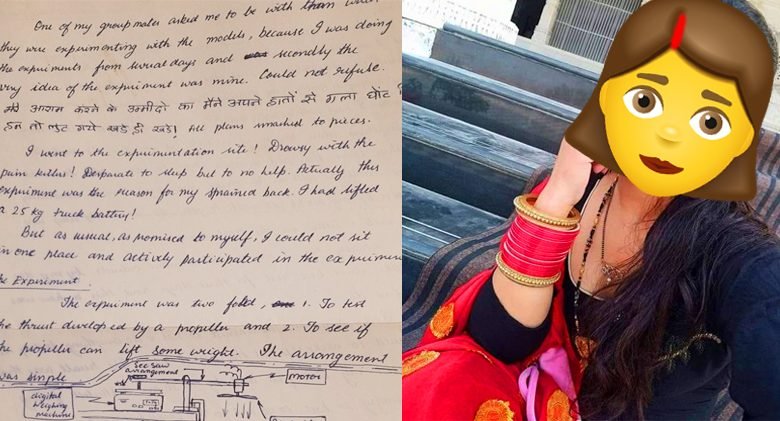 One of my groupmates asked me to be with them when
they were experimenting with the models, because I was doing
the experiments from several days and secondly the
very idea of the experiment was mine. Could not refuse.
मेरे आराम करने के उम्मीदो का मैंने अपने हातों से गला घोंट
हम तो लुट गये खडे ही खडे! All plans smashed to pieces.
I went to the experimentation site! Drowsy with the
pain killers! Desparate to sleep but to no help. Actually this
experiment was the reason for my sprained back. I had lifted
a 25 kg truck battery!
But as usual, as promised to myself, I could not sit
in one place and actively participated in the experiment
The Experiment
The experiment was two fold, 1. To test
the thrust developed by a propeller and 2. To see if
the propeller can lift some weight. The arrangement
was simple
See saw
arrangement
MOTOR
digital
weighing
machine